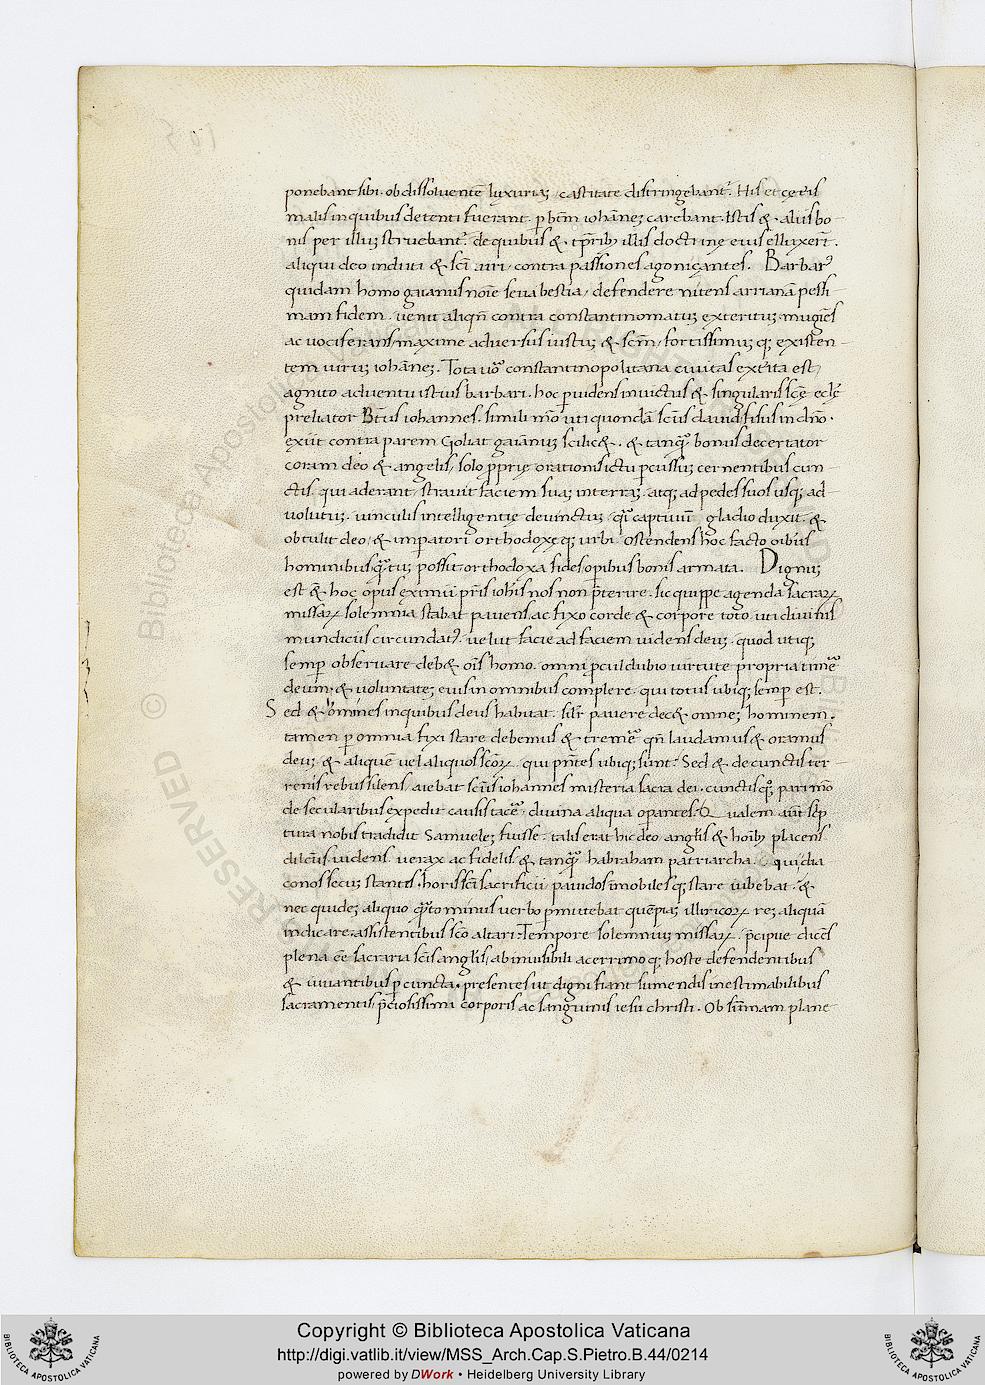 ponebant sibi. ob dissolventē luxuriaȝ, castitate distringebant᷑. His et cęt͛is
malis in quibus detenti fuerant. ꝑ bt̄m iohāneȝ carebant. Istis &. aliis bo-
nis per illuȝ struebant᷑. de quibus &. tp̄rib; illis doctrinę eius elluxer̄t.
aliqui deo induti & sc̄i viri, contra passiones agoniçantes. Barbar᷒
quidam homo gaianus noīe seva bestia, defendere nitens arrianā pessi
mam fidem. venit aliqn̄ contra constantinomatuȝ exteritus mugiēs
ac vociferans, maxime adversus iustuȝ & sc̄m, fortissimuȝ q; existen-
tem viruȝ iohāneȝ. Tota v͛o constantinopolitana civitas ext͛rita est,
agnito adventu istius barbari. hoc ꝑvidens invictus & singularis sc̄ę ecl̄ę
preliator Bt̄us iohannes. simili mō uti quondā sc̄us david, fisus in dn̄o.
exiit contra parem Goliat gaianuȝ scilic&. & tanqᷓ bonus decertator
coram deo & angelis, solo ꝓprię orationis ictu ꝑcussuȝ cernentibus cun-
ctis. qui aderant, stravit faciem suaȝ in terraȝ. atq; ad pedes suos usq; ad-
volutuȝ. vinculis intelligentię devinctuȝ, q̄i captivuȝ gladio duxit. &
obtulit deo, & imꝑatori orthodoxę q; urbi. ostendens hoc facto oībus
hominibus qᷓtuȝ possit orthodoxa fides oꝑibus bonis armata. Dignuȝ
est &̄ hoc opus eximii pr̄is ioh̄is nos non p̄terire. sic quippe agenda sacraꝝ
missaꝝ solemnia stabat pavens, ac fixo corde & corpore toto. uti divinis
mundiciis circundat᷒. velut facie ad faciem videns deuȝ. quod utiq;
semꝑ observare deb& oīs homo. omni ꝓculdubio virtute propria timē
deum. & voluntateȝ eius in omnibus complere. qui totus ubiq; semꝑ est.
Sed & homines in quibus deus habitat. sil̄r pavere dec& omneȝ hominem.
tamen ꝑ omnia fixi stare debemus & tremē qn̄ laudamus & oramus
deuȝ & aliquē vel aliquos sc̄oꝝ. qui pn̄tes ubiq; sunt. Sed & de cunctis ter-
renis rebus silens, aiebat sc̄us iohannes misteria sacra dei. cunctisq; pari mō
de secularibus expedit causis tacē, divina aliqua oꝑantes. Qualem aūt sc̄p
tura nobis tradidit Samueleȝ fuisse. talis erat hic deo anglīs & hoīb; placens
dilc̄us. videns. verax ac fidelis. & tanqᷓ habraham patriarcha. qui dia
conos secus stantes. horis sc̄i sacrificii pavidos imobilesq; stare iubebat. &
nec quideȝ aliquo qᷓto minus verbo ꝑmittebat quēpiaȝ illiricoꝝ reȝ aliquā
indicare. assistentibus sc̄o altari. Tempore solemniuȝ missaꝝ. p̄cipue dicēs
plena eē sacraria sc̄is anglīs, ab invisibili acerrimo q; hoste defendentibus
& iuvantibus ꝑ cuncta. presentes ut digni fiant sumendis inestimabilibus
sacramentis p̄ciosissimi corporis ac sanguinis iesu christi. Ob sūmam plane
Copyright © Biblioteca Apostolica Vaticana
http://digi.vatlib.it/view/MSS_Arch.Cap.S.Pietro.B.44/0214
powered by DWork • Heidelberg University Library